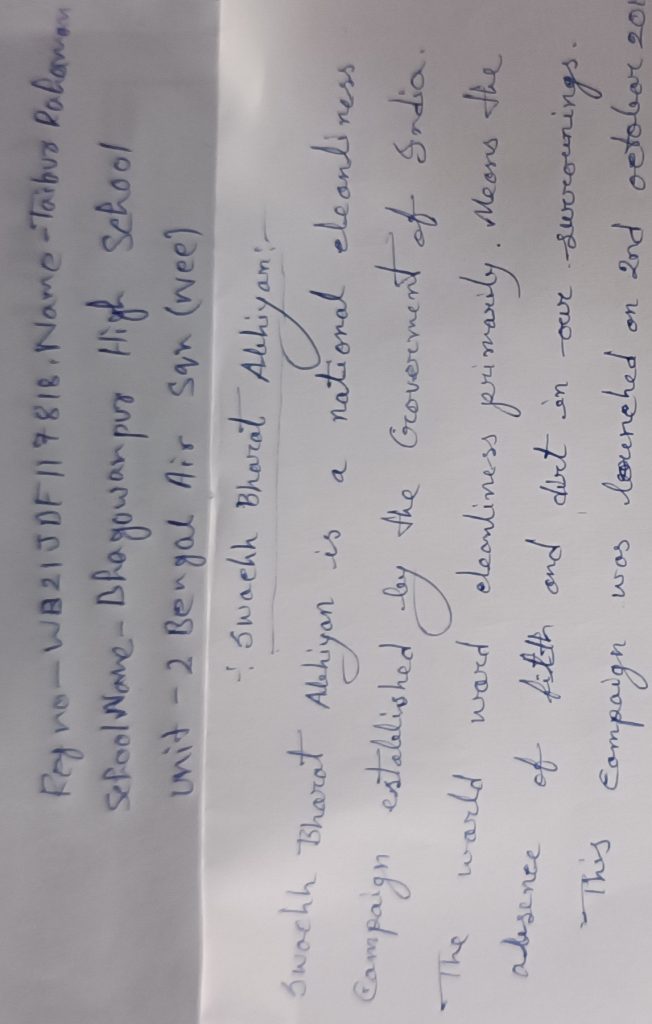 Reg no - WB21JDF117818. Name - Taibur Rahaman
School Name - Bhagowanpur High School
Unit - 2 Bengal Air Sqn (NCC)
-: Swachh Bharat Abhiyan :-
Swachh Bharat Abhiyan is a national cleanliness
Campaign established by the Goverment of India.
The world word cleanliness primarily. Means the
absence of filth and dirt in our surrounings.
This Campaign was launched on 2nd octobar 201